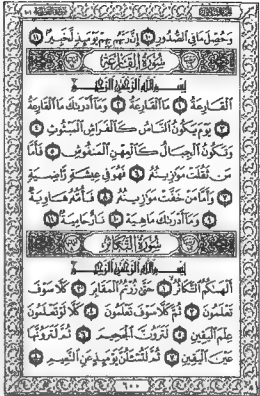 وَحُصِّلَ مَا فِي الصُّدُورِ ١٠ إِنَّ رَبَّهُم بِهِمْ يَوْمَئِذٍ لَّخَبِيرٌ ١١
سُورَةُ القَارِعَةِ
بِسْمِ اللَّهِ الرَّحْمَٰنِ الرَّحِيمِ
الْقَارِعَةُ ١ مَا الْقَارِعَةُ ٢ وَمَا أَدْرَاكَ مَا الْقَارِعَةُ
٣ يَوْمَ يَكُونُ النَّاسُ كَالْفَرَاشِ الْمَبْثُوثِ ٤
وَتَكُونُ الْجِبَالُ كَالْعِهْنِ الْمَنفُوشِ ٥ فَأَمَّا
مَن ثَقُلَتْ مَوَازِينُهُ ٦ فَهُوَ فِي عِيشَةٍ رَّاضِيَةٍ
٧ وَأَمَّا مَنْ خَفَّتْ مَوَازِينُهُ ٨ فَأُمُّهُ هَاوِيَةٌ
٩ وَمَا أَدْرَاكَ مَا هِيَهْ ١٠ نَارٌ حَامِيَةٌ ١١
سُورَةُ التَّكَاثُرِ
بِسْمِ اللَّهِ الرَّحْمَٰنِ الرَّحِيمِ
أَلْهَاكُمُ التَّكَاثُرُ ١ حَتَّىٰ زُرْتُمُ الْمَقَابِرَ ٢ كَلَّا سَوْفَ
تَعْلَمُونَ ٣ ثُمَّ كَلَّا سَوْفَ تَعْلَمُونَ ٤ كَلَّا لَوْ تَعْلَمُونَ
عِلْمَ الْيَقِينِ ٥ لَتَرَوُنَّ الْجَحِيمَ ٦ ثُمَّ لَتَرَوُنَّهَا
عَيْنَ الْيَقِينِ ٧ ثُمَّ لَتُسْأَلُنَّ يَوْمَئِذٍ عَنِ النَّعِيمِ ٨
٦٠٠